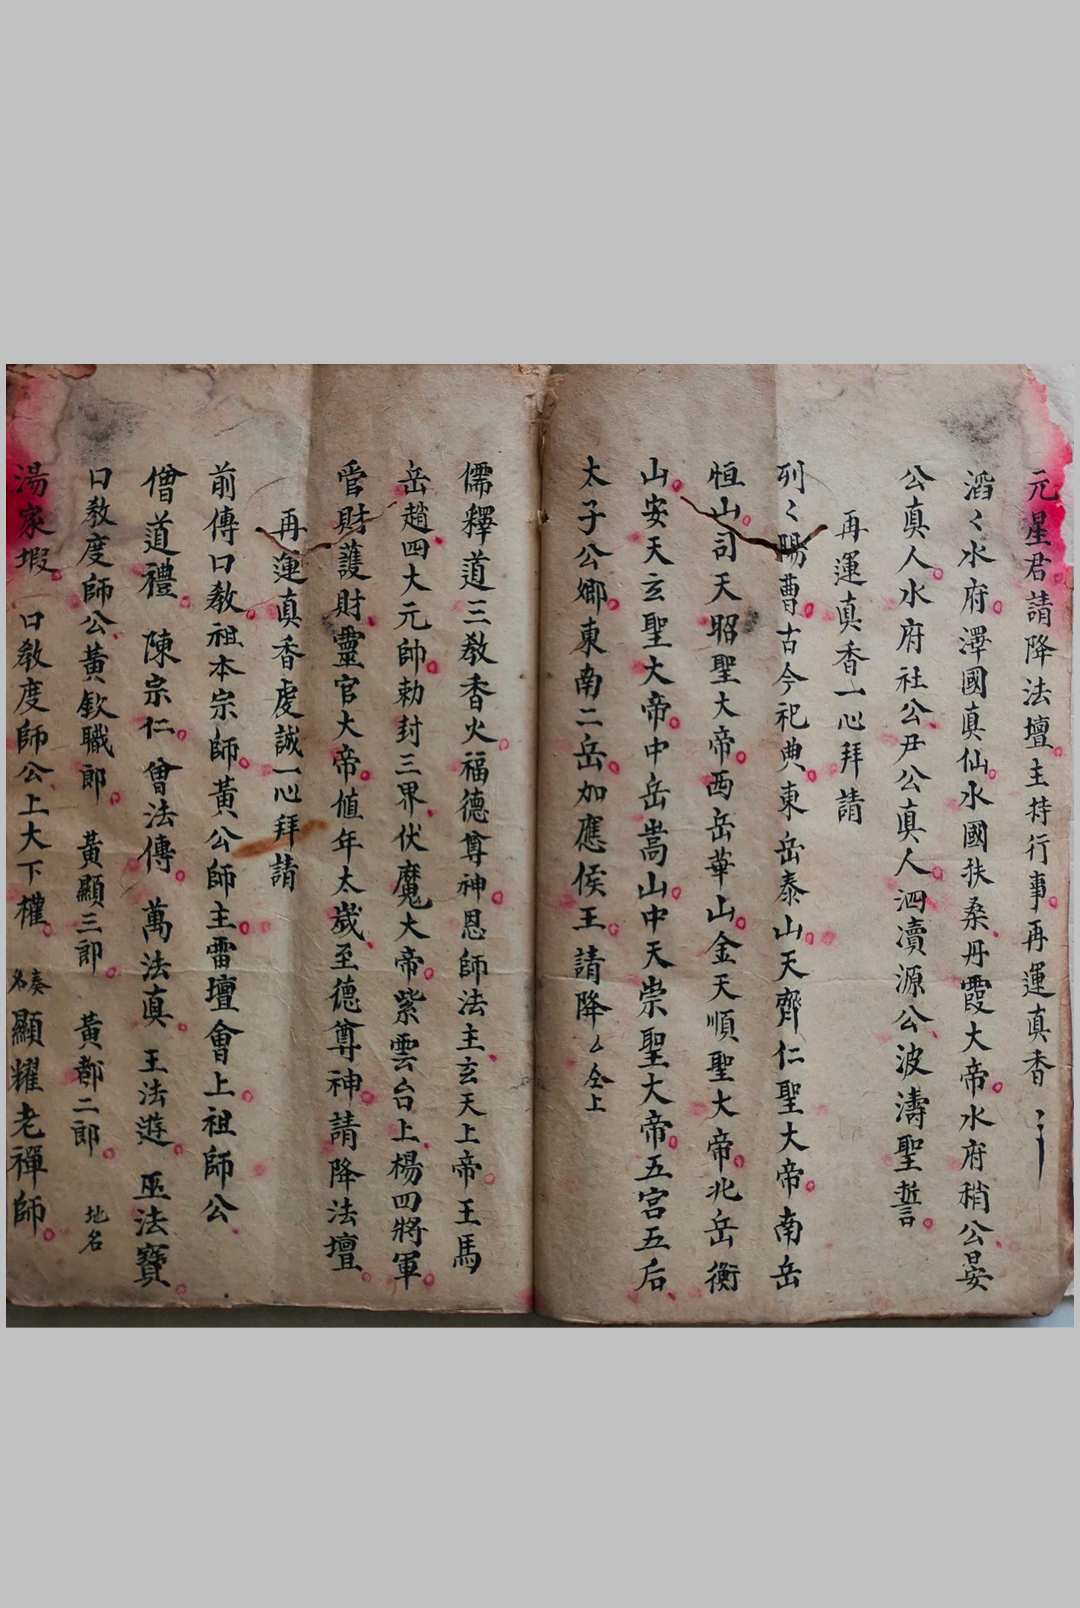 元星君請降法壇主持行事再運真香
滔〻水府澤國真仙水國扶桑丹霞大帝水府稍公晏
公真人水府社公尹公真人泗瀆源公波濤聖誓
再運真香一心拜請
列〻陽曹古今祀典東岳泰山天齊仁聖大帝南岳
恒山司天昭聖大帝西岳華山金天順聖大帝北岳衡
山安天玄聖大帝中岳嵩山中天崇聖大帝五宮五后
太子公鄉東南二岳加應侯王請降厶仝上
儒釋道三教香火福德尊神恩師法主玄天上帝王馬
岳趙四大元帥勅封三界伏魔大帝紫雲台上楊四將軍
管財護財靈官大帝值年太歲至德尊神請降法壇
再運真香虔誠一心拜請
前傳口教祖本宗師黃公師主雷壇會上祖師公
僧道禮 陳宗仁 曾法傳 萬法真 王法遊 巫法寶
口教度師公黃欽職郎 黃顯三郎 黃都二郎 地名
湯家塅 口教度師公上大下權 奏名 顯耀老禪師